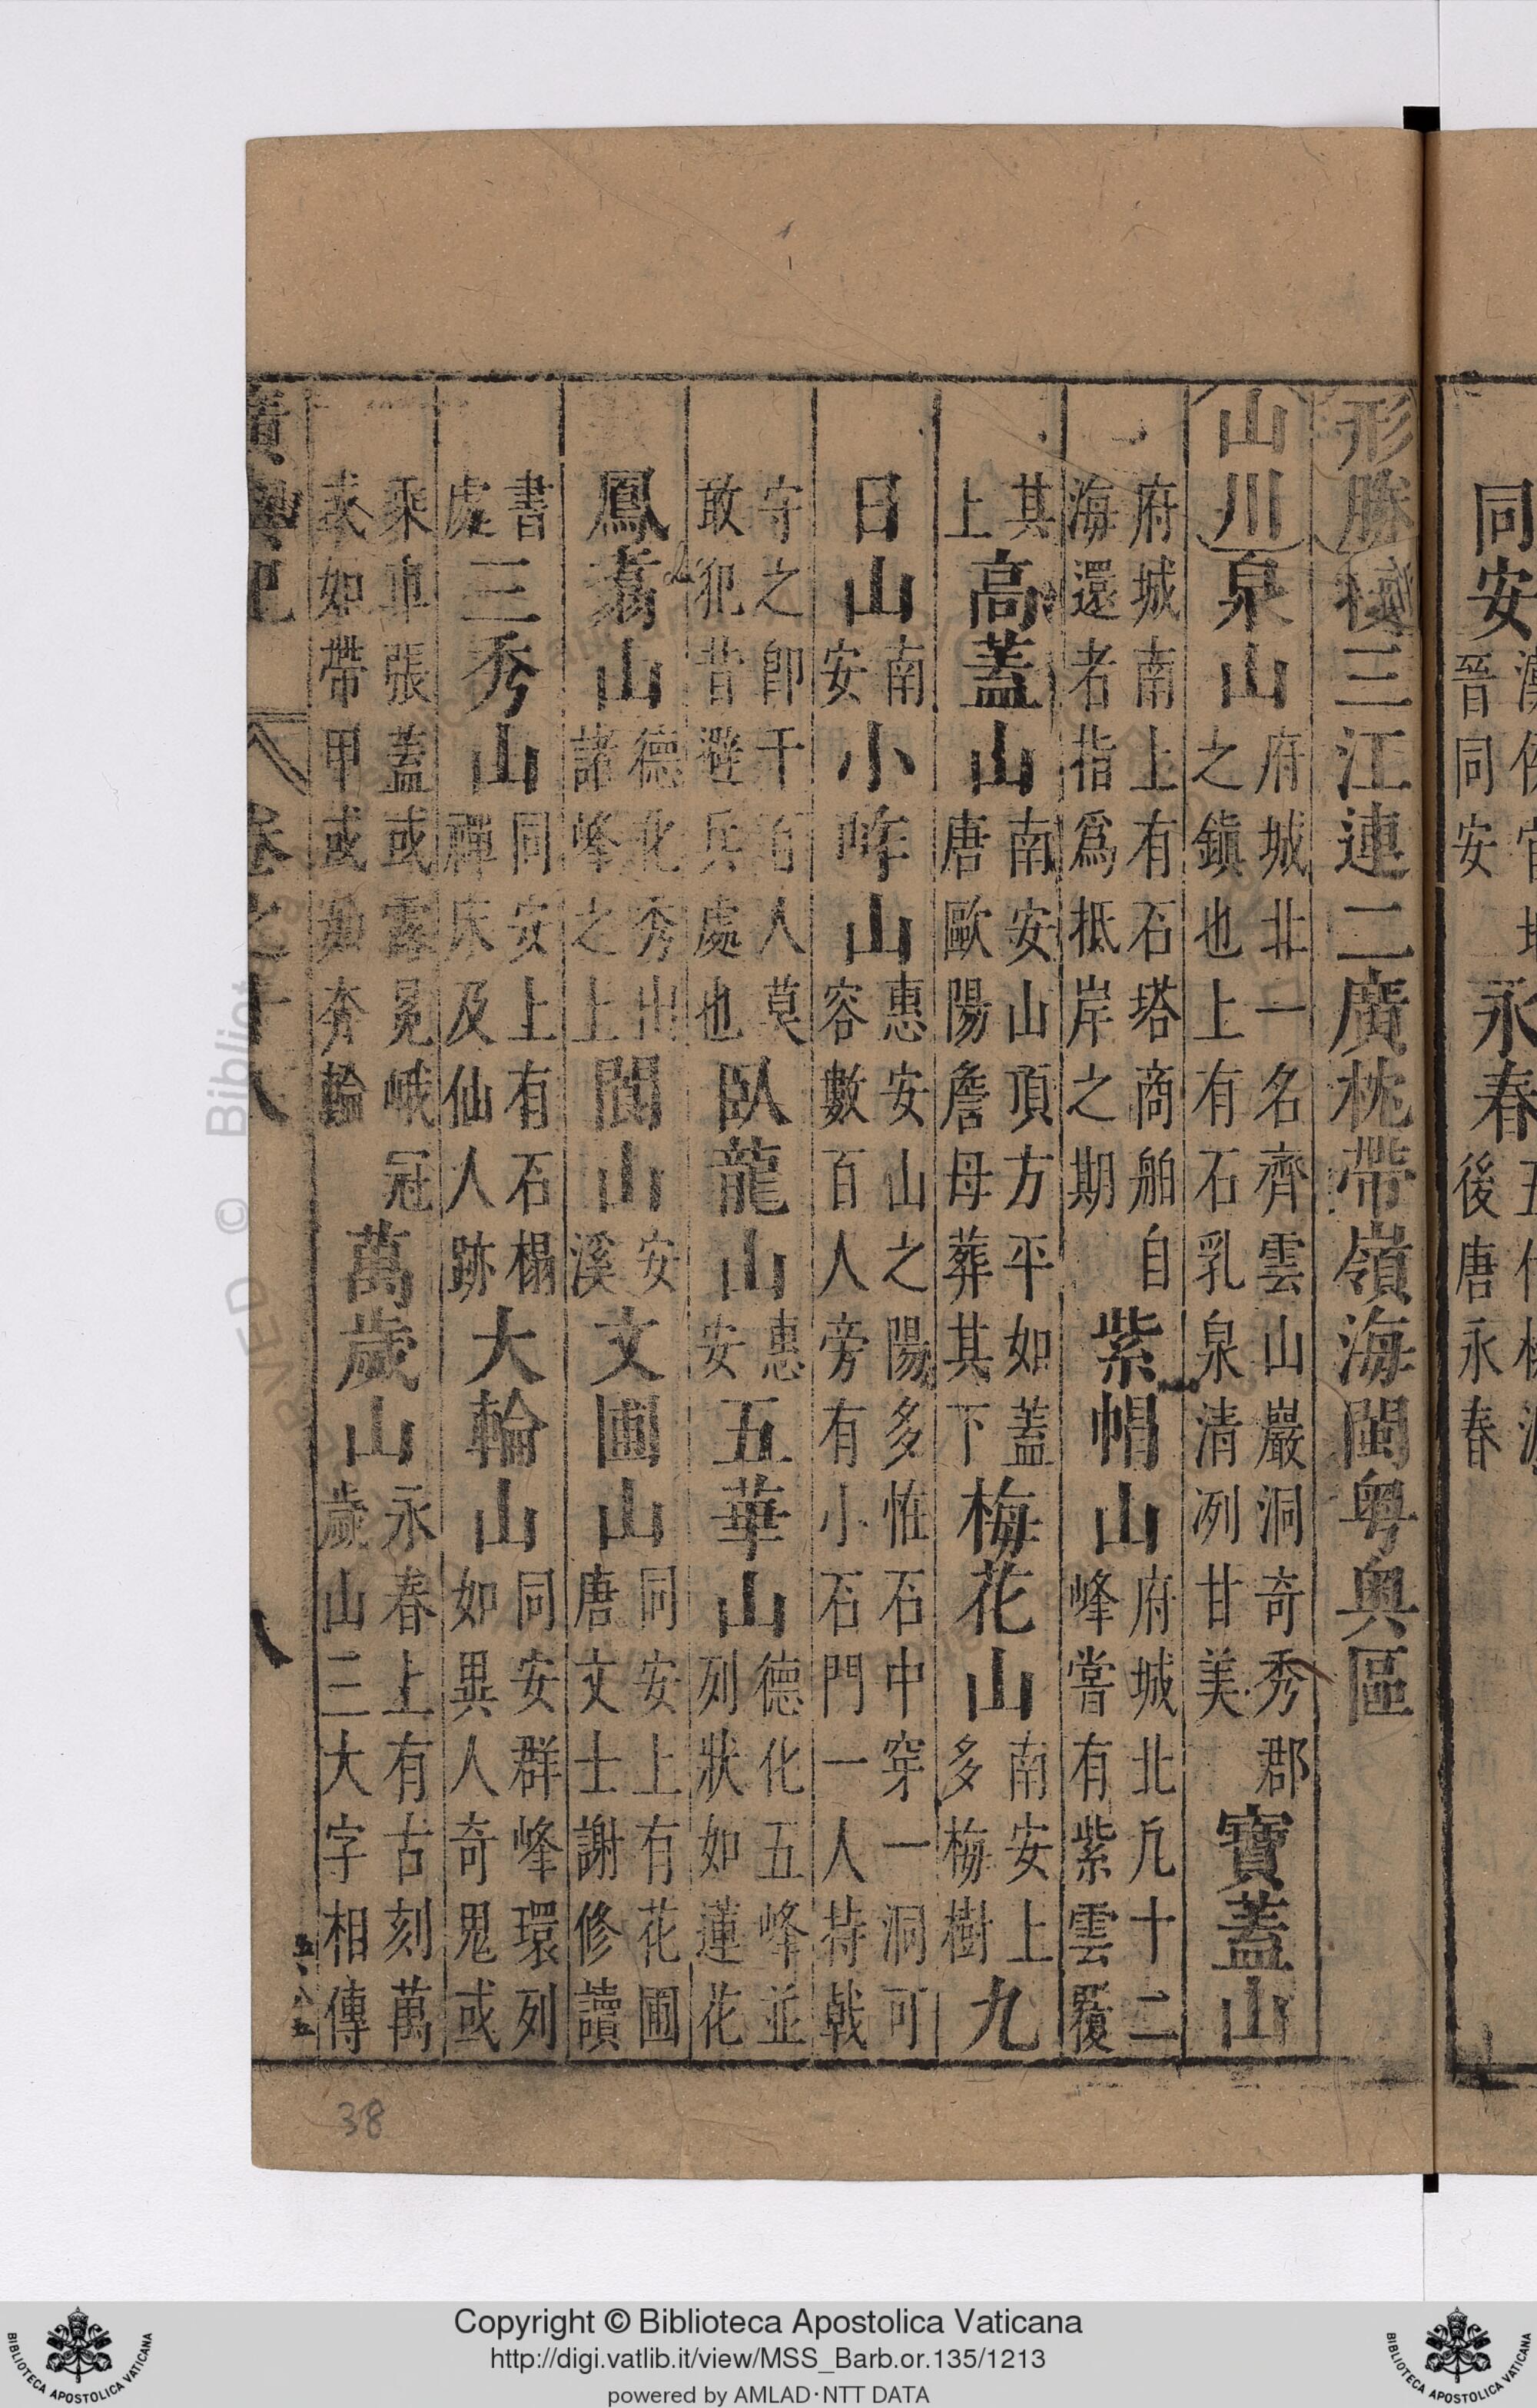 同安晉同安
永春後唐永春
形勝襟三江連二廣枕帶嶺海閩粵奧區
山川泉山府城北一名齊雲山巖洞奇秀郡之鎮也上有石乳泉清冽甘美寶蓋山
府城南上有石塔商舶自海還者指爲抵岸之期紫帽山府城北凡十二峰嘗有紫雲覆
其上高蓋山南安山頂方平如蓋唐歐陽詹母葬其下梅花山南安上多梅樹九
日山南安小岞山惠安山之陽多恠石中穿一洞可容數百人旁有小石門一人持戟
守之卽千百人莫敢犯昔避兵處也臥龍山惠安五華山德化五峰並列狀如蓮花
鳳翥山德化秀出諸峰之上閬山安溪文圃山同安上有花圃唐文士謝修讀
書處三秀山同安上有石榻禪床及仙人跡大輪山同安群峰環列如異人奇鬼或
乘車張蓋或露冕峨冠如帶甲或如奔輪萬歲山永春上有古刻萬歲山三大字相傳
廣輿記 卷之十八 八
38
Copyright © Biblioteca Apostolica Vaticana
http://digi.vatlib.it/view/MSS_Barb.or.135/1213
powered by AMLAD·NTT DATA
BIBLIOTECA APOSTOLICA VATICANA
BIBLIOTECA APOSTOLICA VATICANA